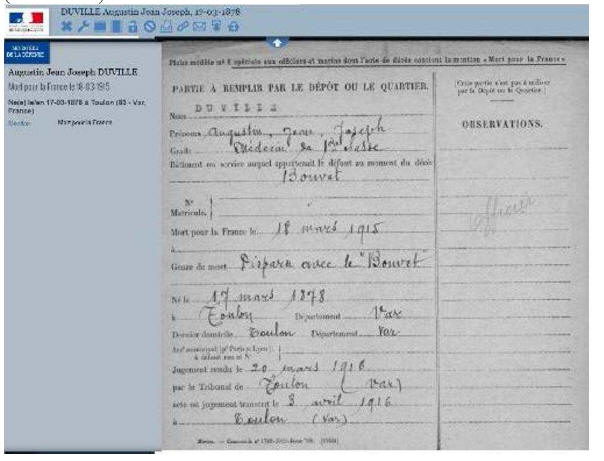 DUVILLE Augustin Jean Joseph, 17-03-1878
MINISTÈRE
DE LA DÉFENSE
Augustin Jean Joseph DUVILLE
Mort pour la France le 18-03-1915
Né(e) le/en 17-03-1878 à Toulon (83 - Var, France)
Mention Mort pour la France
Fiche modèle nº spéciale aux officiers et marins dont l'acte de décès contient la mention « Mort pour la France »
PARTIE À REMPLIR PAR LE DÉPÔT OU LE QUARTIER.
(Cette partie n'est pas à utiliser
par le Dépôt ou le Quartier.)
DUVILLE
Nom
OBSERVATIONS.
Prénoms Augustin, Jean, Joseph
Grade Médecin de 1re classe
Bâtiment ou service auquel appartenait le défunt au moment du décès
Bouvet
Nº
Matricule.
officier
Mort pour la France le 18 mars 1915
à
Genre de mort Disparu avec le "Bouvet"
Né le 17 mars 1878
à Toulon Département Var
Dernier domicile Toulon Département Var
Arrt municipal (pr Paris et Lyon)
à défaut rue et Nº
Jugement rendu le 20 mars 1916
par le Tribunal de Toulon (Var)
acte ou jugement transcrit le 3 avril 1916
à Toulon (Var)